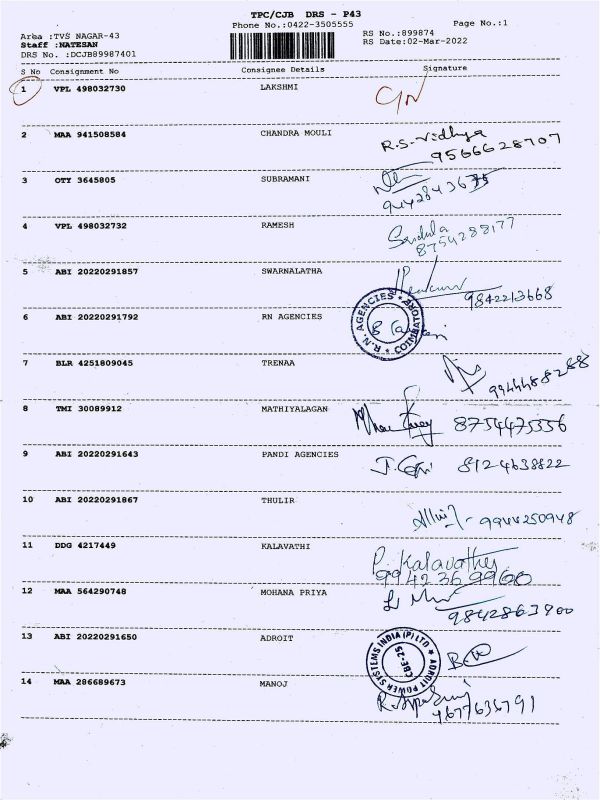 TPC/CJB DRS - P43
Phone No.:0422-3505555
Page No.:1
Area :TVS NAGAR-43
Staff :NATESAN
DRS No. :DCJB89987401
RS No.:899874
RS Date:02-Mar-2022
S No Consignment No Consignee Details Signature
1 VPL 498032730 LAKSHMI
2 MAA 941508584 CHANDRA MOULI R.S. Vidhya
9566628707
3 OTY 3645805 SUBRAMANI
4 VPL 498032732 RAMESH
8754288177
5 ABI 20220291857 SWARNALATHA
9842213668
6 ABI 20220291792 RN AGENCIES
R.N. AGENCIES * COIMBATORE *
7 BLR 4251809045 TRENAA
9944488288
8 TMI 30089912 MATHIYALAGAN 8754475556
9 ABI 20220291643 PANDI AGENCIES 8124638822
10 ABI 20220291867 THULIR
9944250948
11 DDG 4217449 KALAVATHI
P. Kalavathy
9942369960
12 MAA 564290748 MOHANA PRIYA
9842863900
13 ABI 20220291650 ADROIT
ADROIT POWER SYSTEMS INDIA (P) LTD
CBE-25
14 MAA 286689673 MANOJ